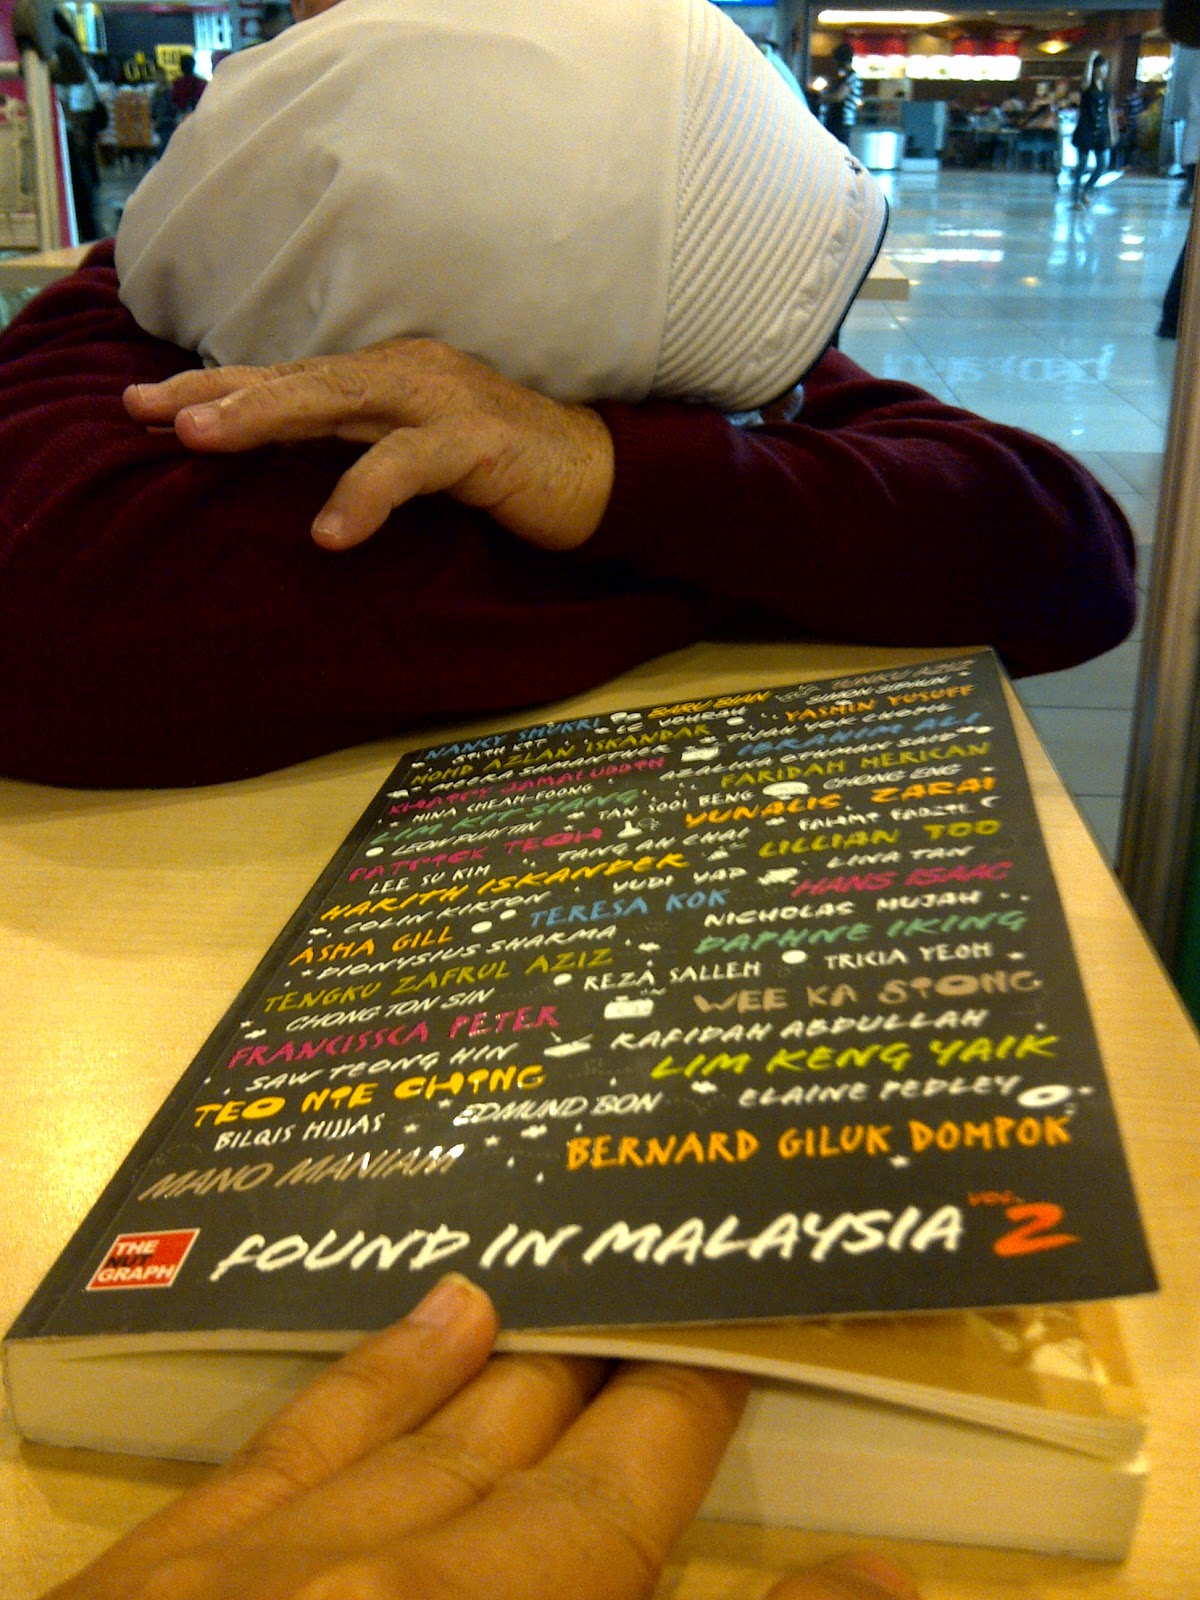 NANCY SHUKRI BARU BIAN TENKU AZIZ
SIMON SIPAUN
YASMIN YUSUFF
MOHD AZLAN ISKANDAR TIJAH YOK CHOPIL
IBRAHIM ALI
KHAIRY JAMALUDDIN AZALINA OTHMAN SAID
FARIDAH MERICAN
MINA CHEAH-FOONG CHONG ENG
LIM KIT SIANG TAN SOOI BENG YUNALIS ZARAI
PATRICK TEOH TANG AH CHAI FAHMI FADZIL
LEE SU KIM LILLIAN TOO
HARITH ISKANDER YUDI YAP LINA TAN
COLIN KIRTON HANS ISAAC
ASHA GILL TERESA KOK NICHOLAS MUJAH
DIONYSIUS SHARMA DAPHNE IKING
TENGKU ZAFRUL AZIZ REZA SALLEH TRICIA YEOH
CHONG TON SIN WEE KA SIONG
FRANCISSCA PETER RAFIDAH ABDULLAH
SAW TEONG HIN LIM KENG YAIK
TEO NIE CHING EDMUND BON ELAINE PEDLEY
BILQIS HIJJAS
MANO MANIAM BERNARD GILUK DOMPOK
THE
NUT
GRAPH
FOUND IN MALAYSIA VOL. 2